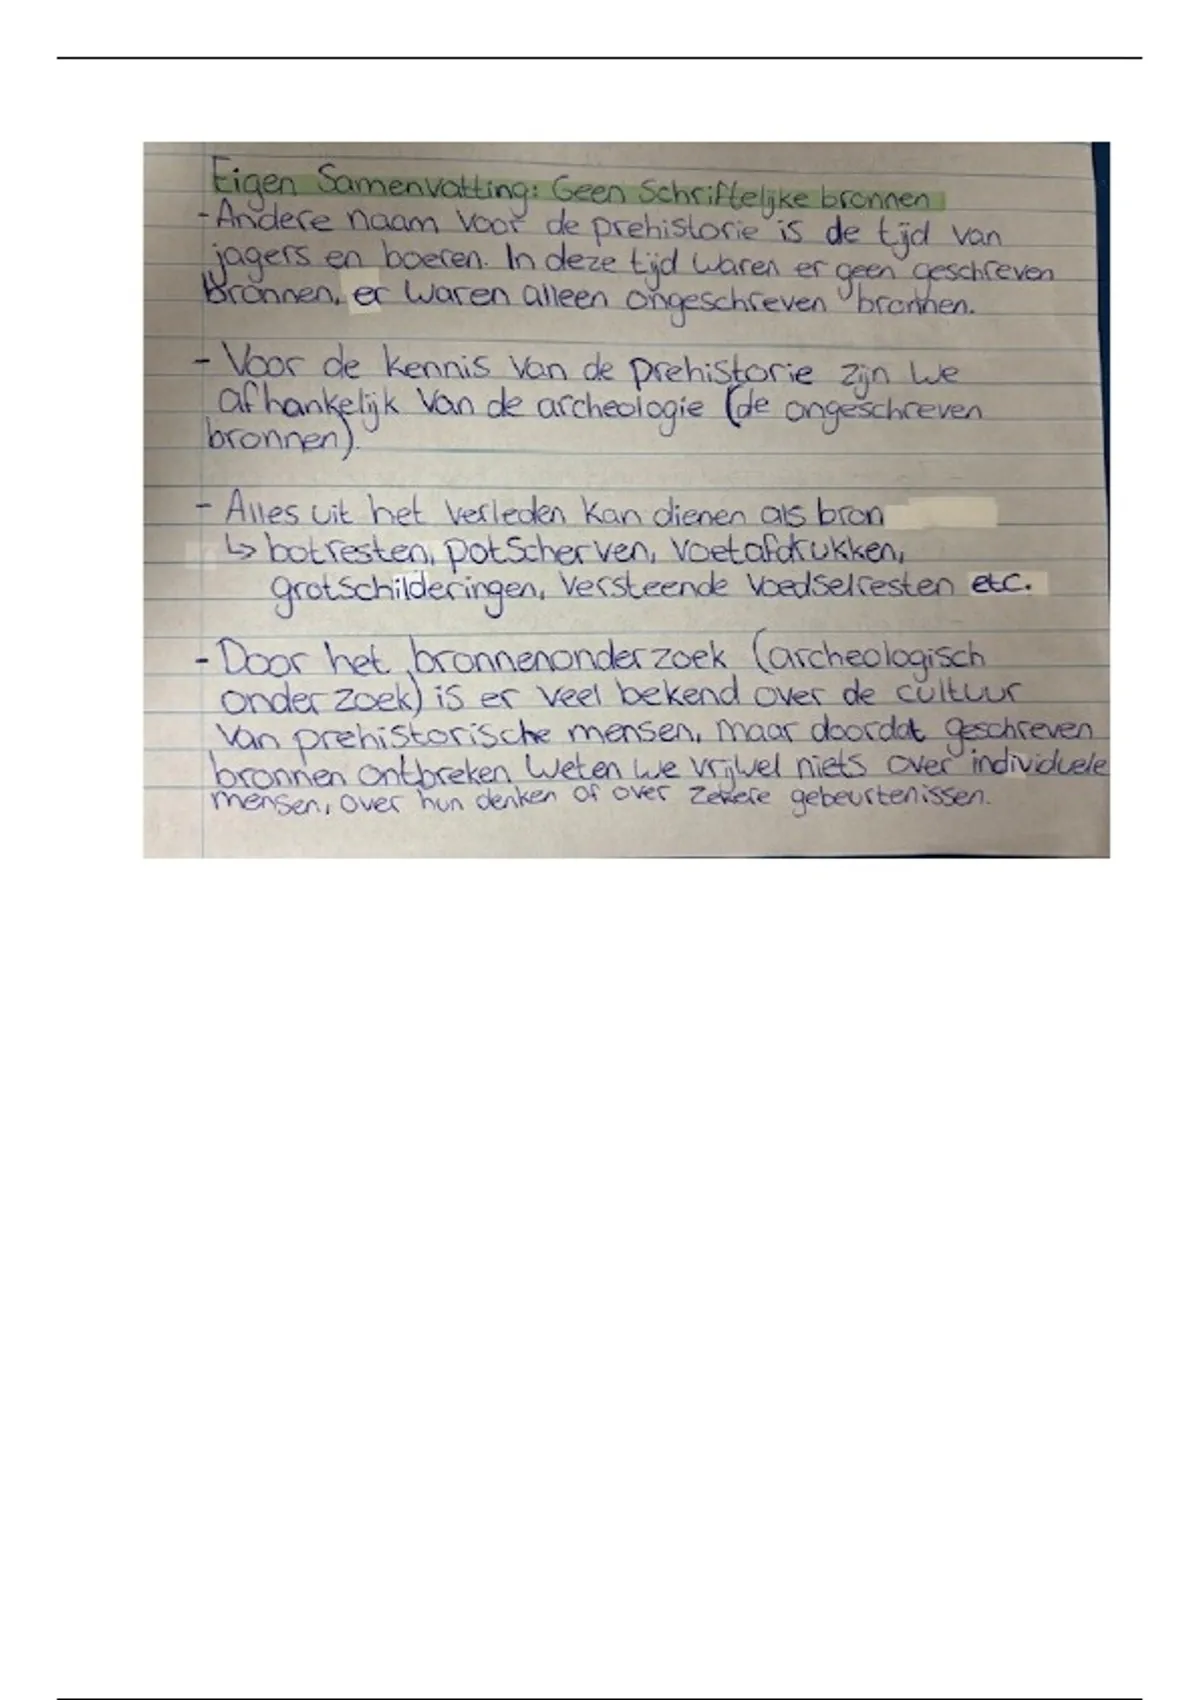 Eigen Samenvatting: Geen Schriftelijke bronnen
- Andere naam voor de prehistorie is de tijd van
jagers en boeren. In deze tijd waren er geen geschreven
bronnen, er waren alleen ongeschreven bronnen.
- Voor de kennis van de prehistorie zijn we
afhankelijk van de archeologie (de ongeschreven
bronnen).
- Alles uit het verleden kan dienen als bron
↳ botresten, potscherven, voetafdrukken,
grotschilderingen, versteende voedselresten etc.
- Door het bronnenonderzoek (archeologisch
onderzoek) is er veel bekend over de cultuur
van prehistorische mensen, maar doordat geschreven
bronnen ontbreken weten we vrijwel niets over individuele
mensen, over hun denken of over zekere gebeurtenissen.